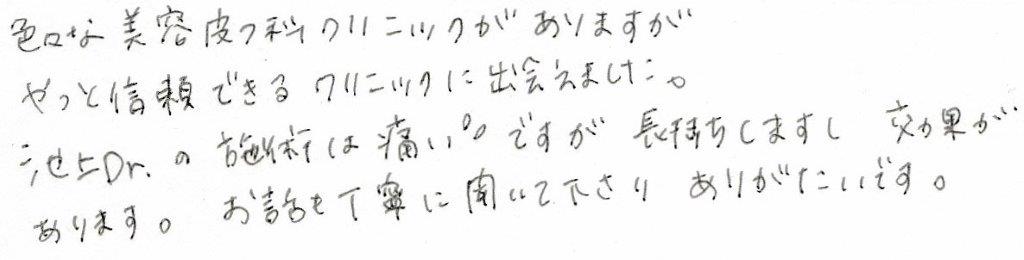 色々な美容皮フ科クリニックがありますが
やっと信頼できるクリニックに出会えました。
池上Dr.の施術は痛い°°ですが 長持ちしますし 効果が
あります。 お話も丁寧に聞いて下さり ありがたいです。